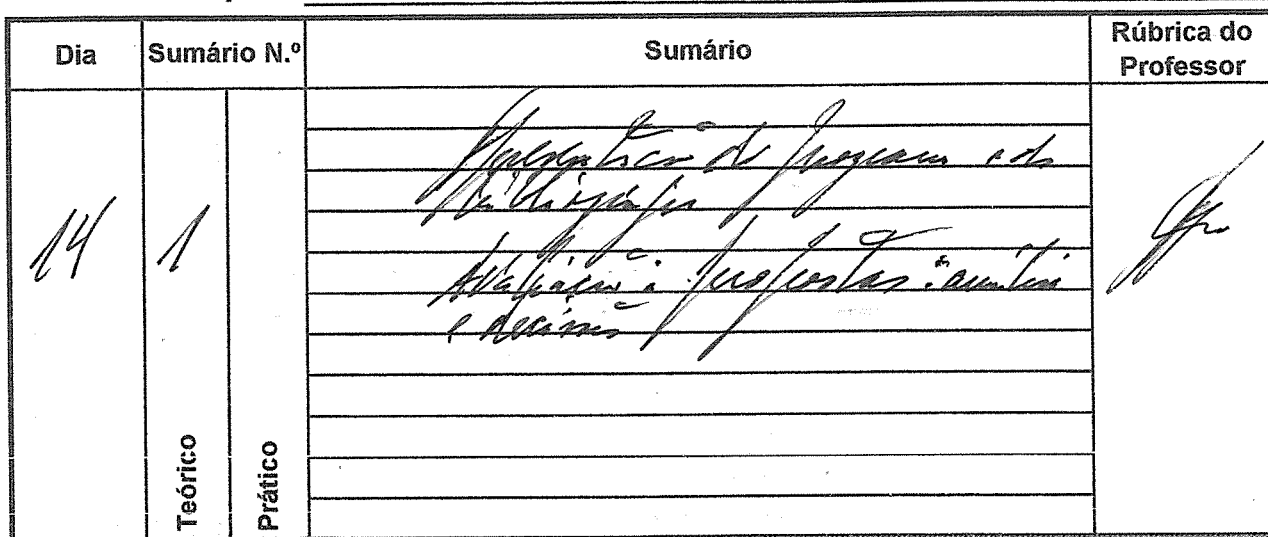 Dia Sumário N.º Sumário Rúbrica do Professor
Apresentação do programa e da
bibliografia
14 1
Avaliação: propostas, análise
e decisões
Teórico Prático